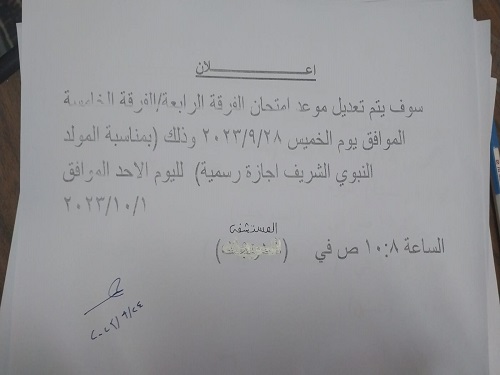 اعـــــــــلان
سوف يتم تعديل موعد امتحان الفرقة الرابعة/الفرقة الخامسة
الموافق يوم الخميس ٢٠٢٣/٩/٢٨ وذلك (بمناسبة المولد
النبوي الشريف اجازة رسمية) لليوم الاحد الموافق
٢٠٢٣/١٠/١
المستشفى
الساعة ١٠:٨ ص في ()
٢٠٢٣/٩/٢٤